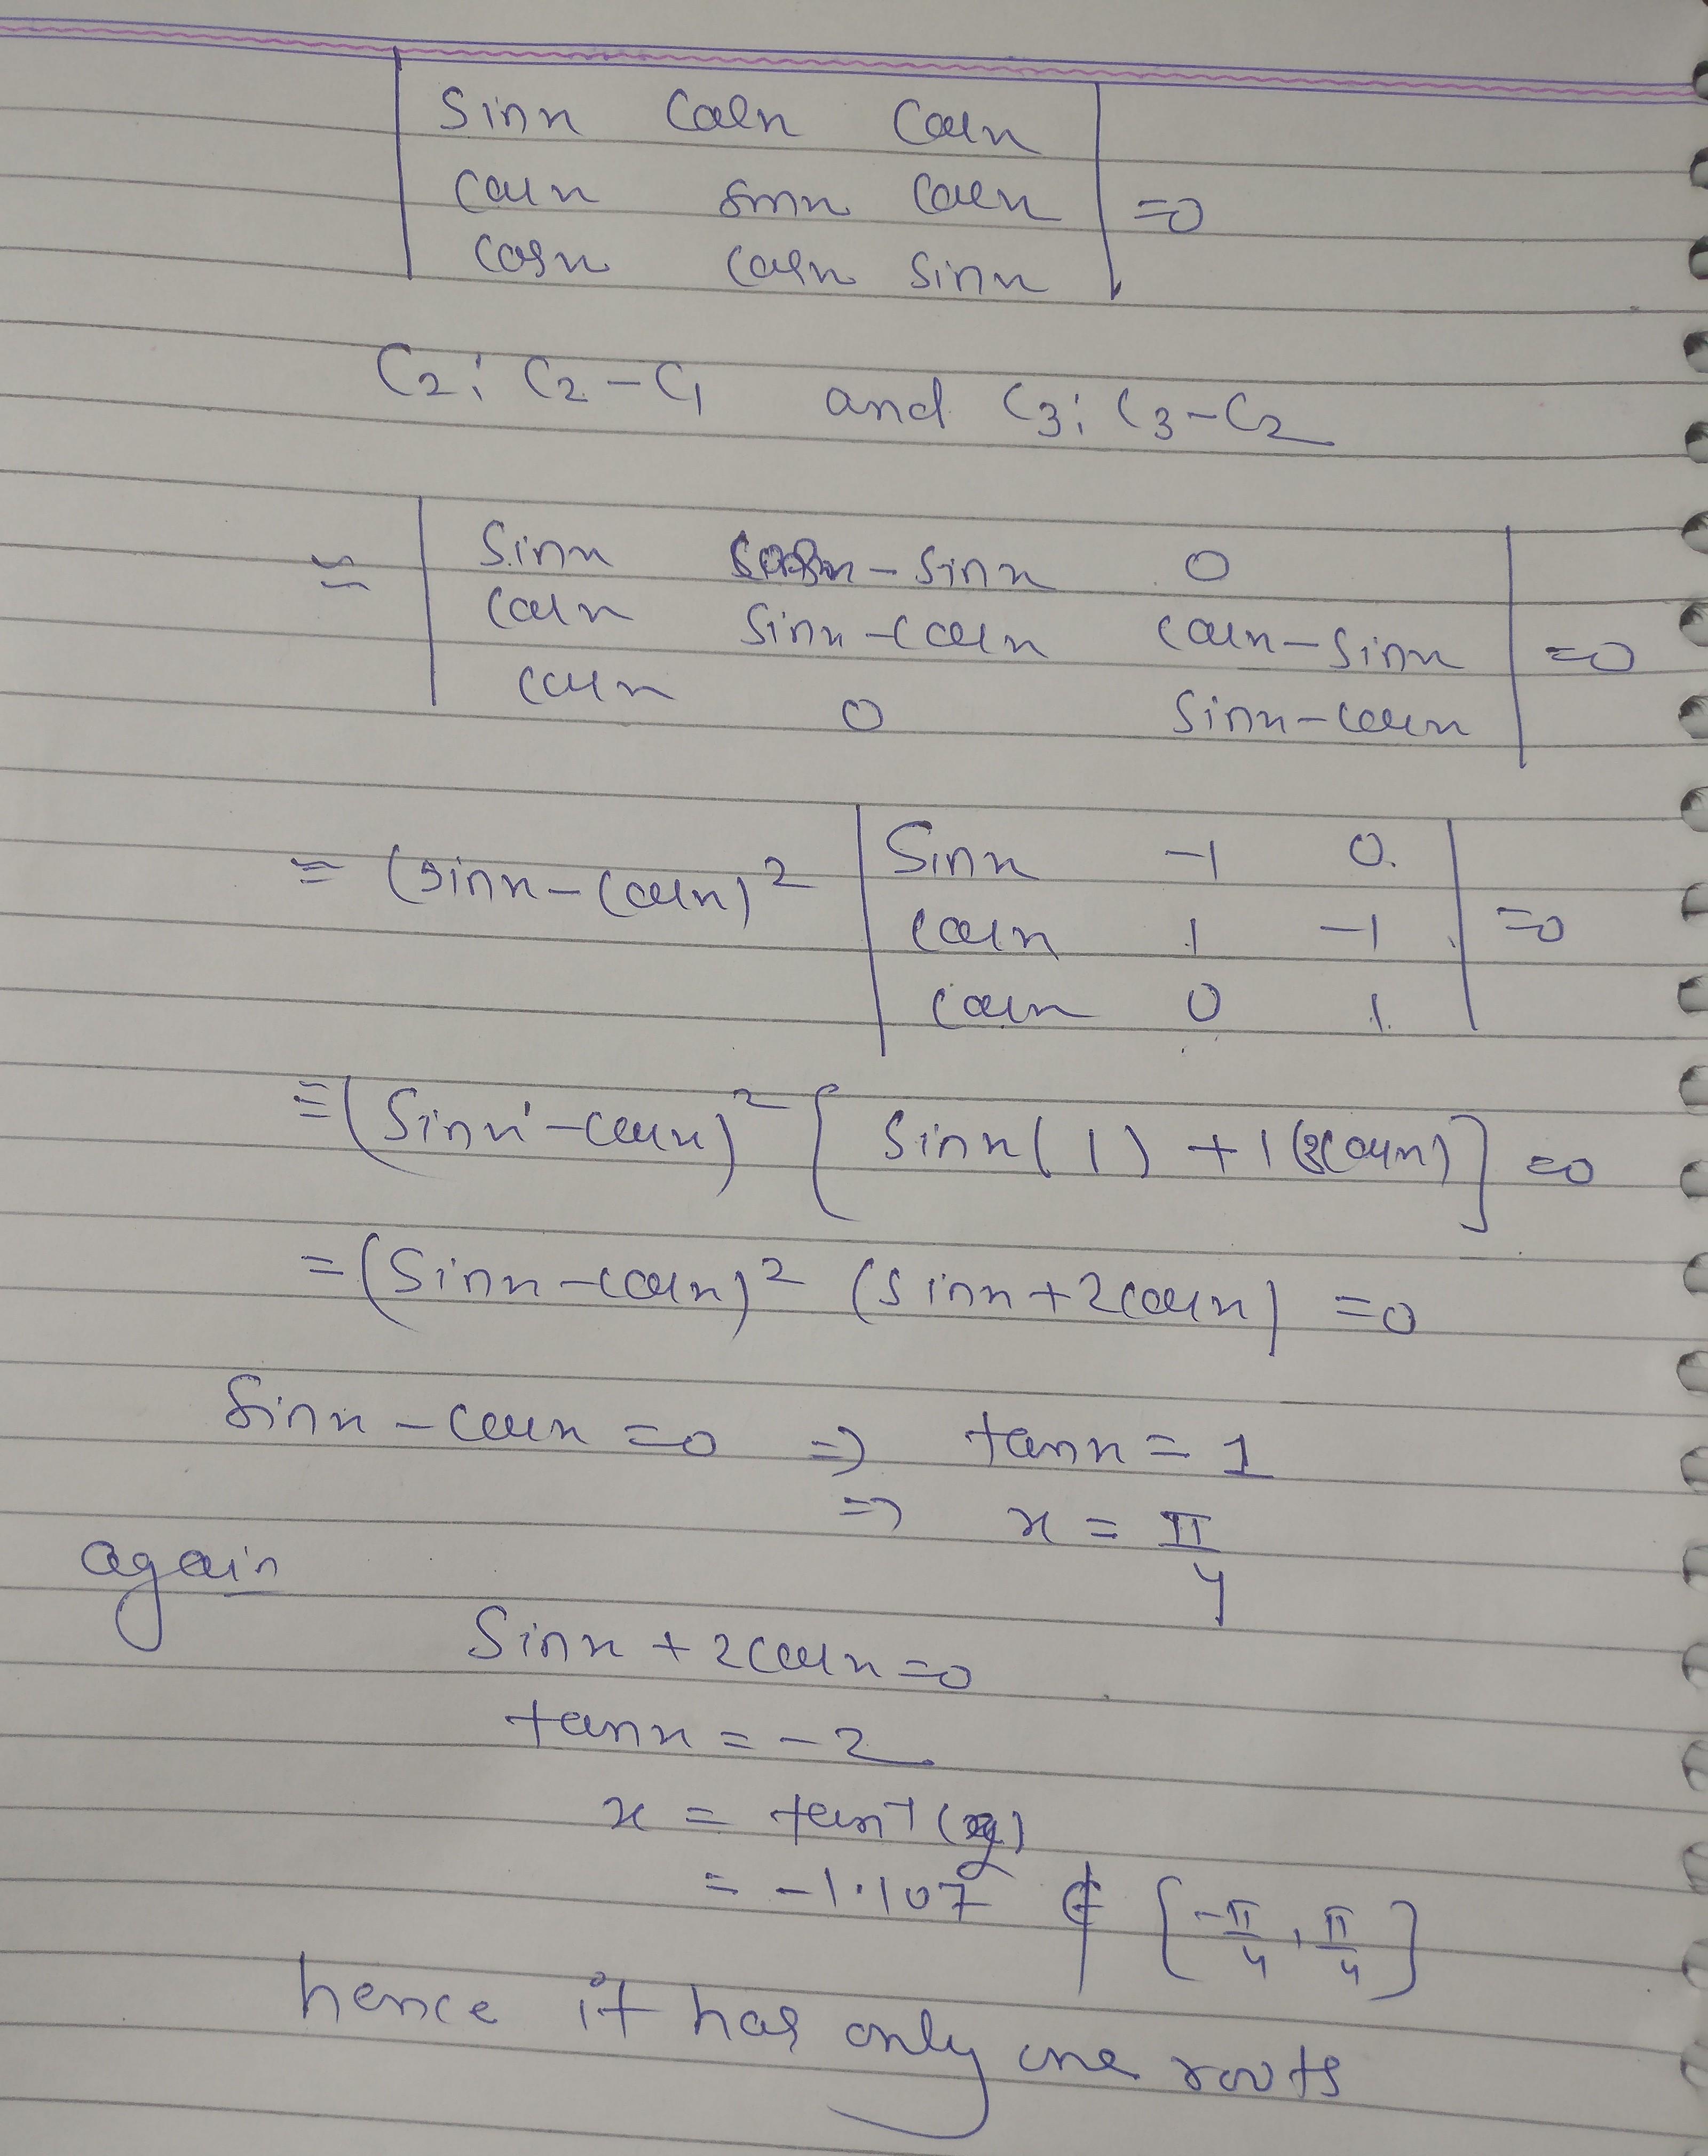 | sinx cosx cosx |
| cosx sinx cosx | =0
| cosx cosx sinx |
C2: C2-C1 and C3: C3-C2
= | sinx cosx-sinx 0 |
| cosx sinx-cosx cosx-sinx | =0
| cosx 0 sinx-cosx |
= (sinx-cosx)² | sinx -1 0 |
| cosx 1 -1 | =0
| cosx 0 1 |
= (sinx-cosx)² [ sinx(1) + 1(2cosx) ] =0
= (sinx-cosx)² (sinx+2cosx) =0
sinx - cosx =0 ⇒ tanx = 1
⇒ x = π/4
again
sinx + 2cosx =0
tanx = -2
x = tan⁻¹
= -1.107 ∉ [-π/4, π/4]
hence it has only one roots